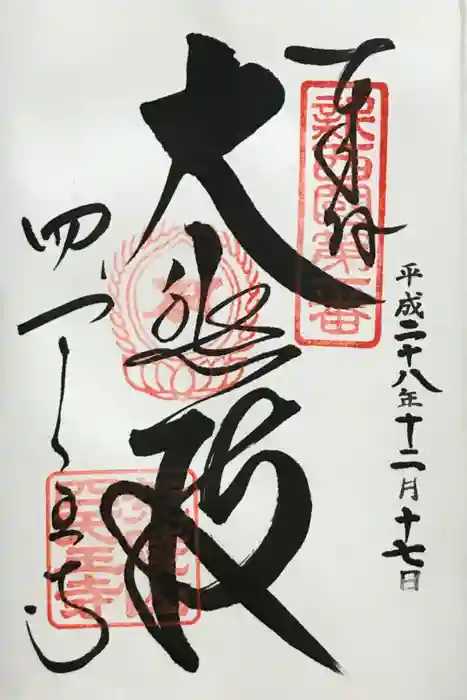 平成二十八年十二月十七日
奉拝
新西國第一番
大悲殿
四天王寺
四天王寺